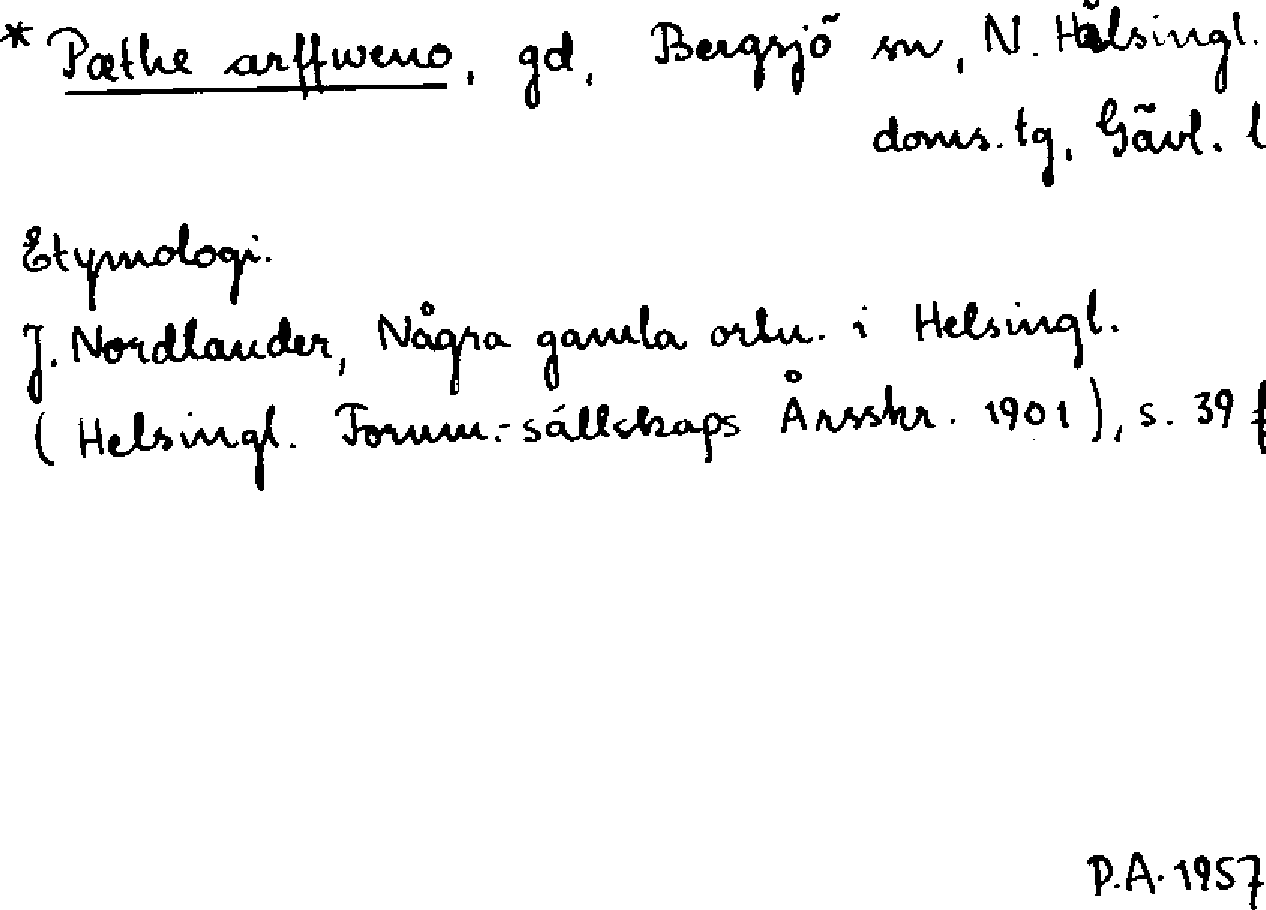 * Pæthe arffweno, gd, Bergsjö sn, N. Hälsingl.
doms. tg, Gävl. l
Etymologi.
J. Nordlander, Några gamla ortn. i Helsingl.
( Helsingl. Fornm.-sällskaps Årsskr. 1901), s. 39 f
P.A. 1957